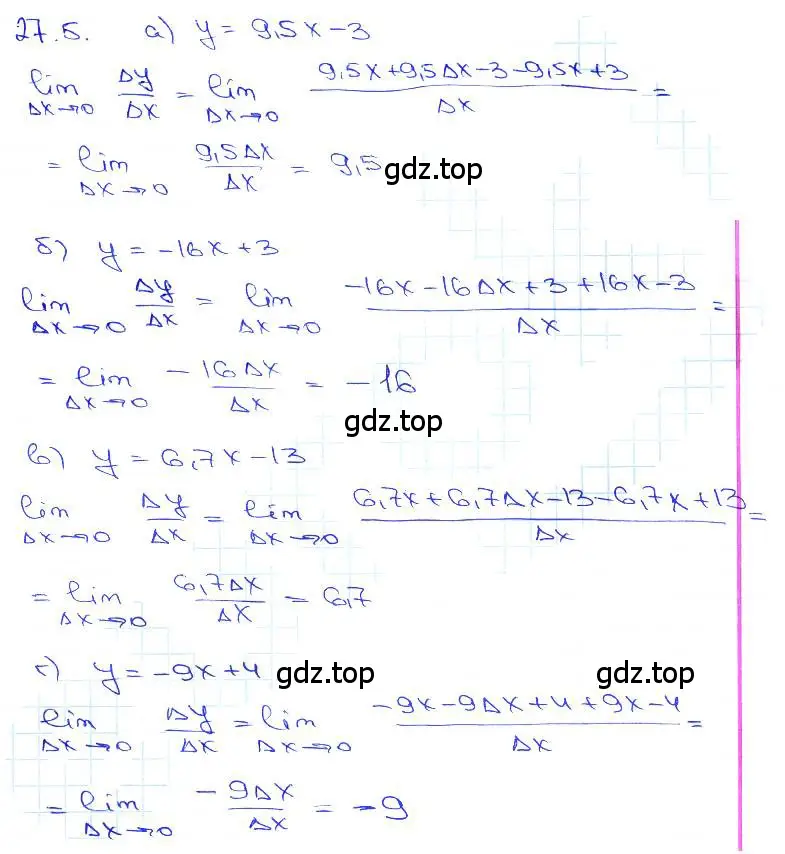 27.5. а) y = 9,5x-3
lim Δx→0 Δy/Δx = lim Δx→0 (9,5x+9,5Δx-3-9,5x+3)/Δx =
= lim Δx→0 9,5Δx/Δx = 9,5
gdz.top
б) y = -16x+3
lim Δx→0 Δy/Δx = lim Δx→0 (-16x-16Δx+3+16x-3)/Δx =
= lim Δx→0 -16Δx/Δx = -16
gdz.top
в) y = 6,7x-13
lim Δx→0 Δy/Δx = lim Δx→0 (6,7x+6,7Δx-13-6,7x+13)/Δx =
= lim Δx→0 6,7Δx/Δx = 6,7
г) y = -9x+4
gdz.top gdz.top
lim Δx→0 Δy/Δx = lim Δx→0 (-9x-9Δx+4+9x-4)/Δx =
= lim Δx→0 -9Δx/Δx = -9